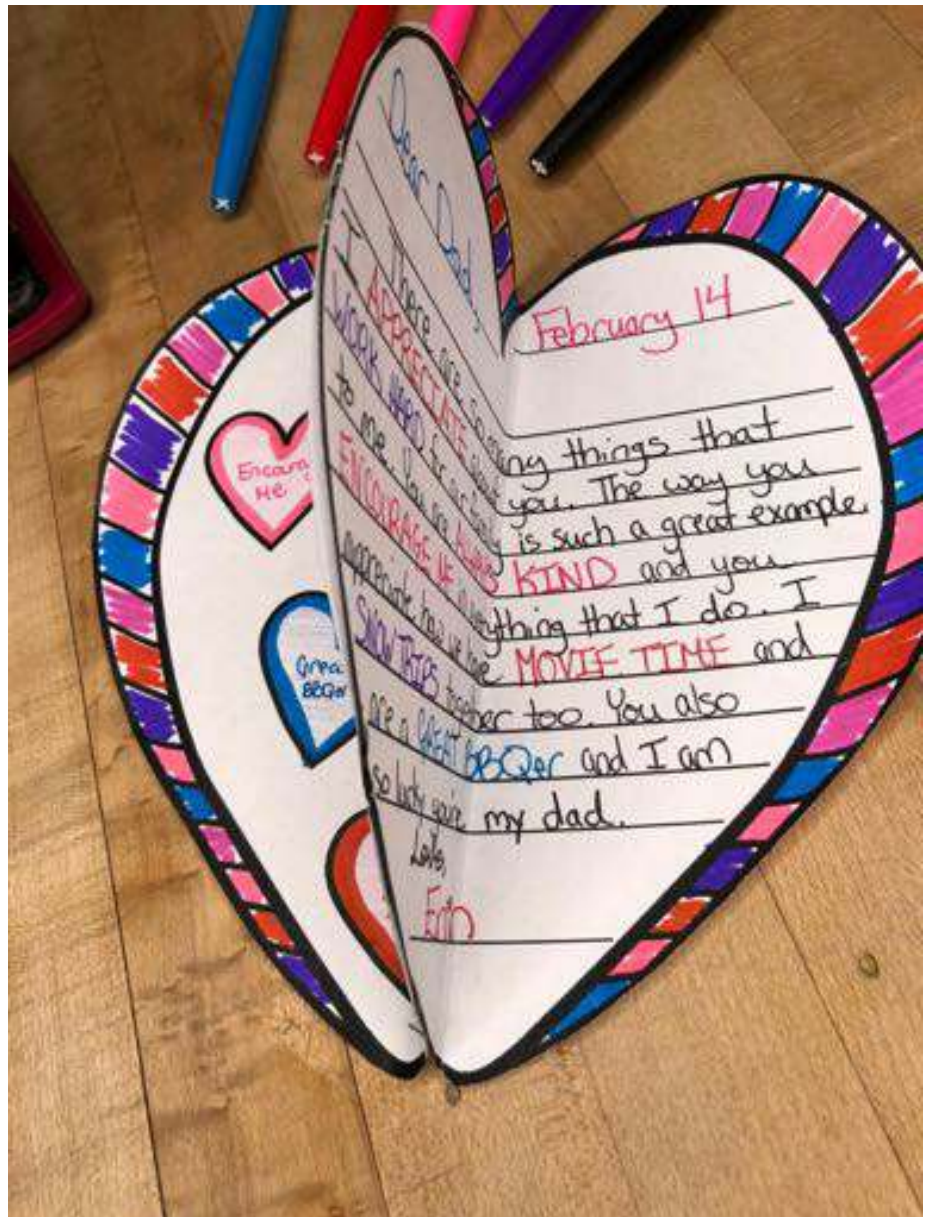 February 14
Dear Dad,
There are so many things that
I APPRECIATE about you. The way you
WORK HARD for our family is such a great example
to me. You are ALWAYS KIND and you
ENCOURAGE ME in everything that I do. I
appreciate how we have MOVIE TIME and
SNOW TRIPS together too. You also
are a GREAT BBQer and I am
so lucky you're my dad.
Love,
Erin
Encoura
Me
Grea
BBQer